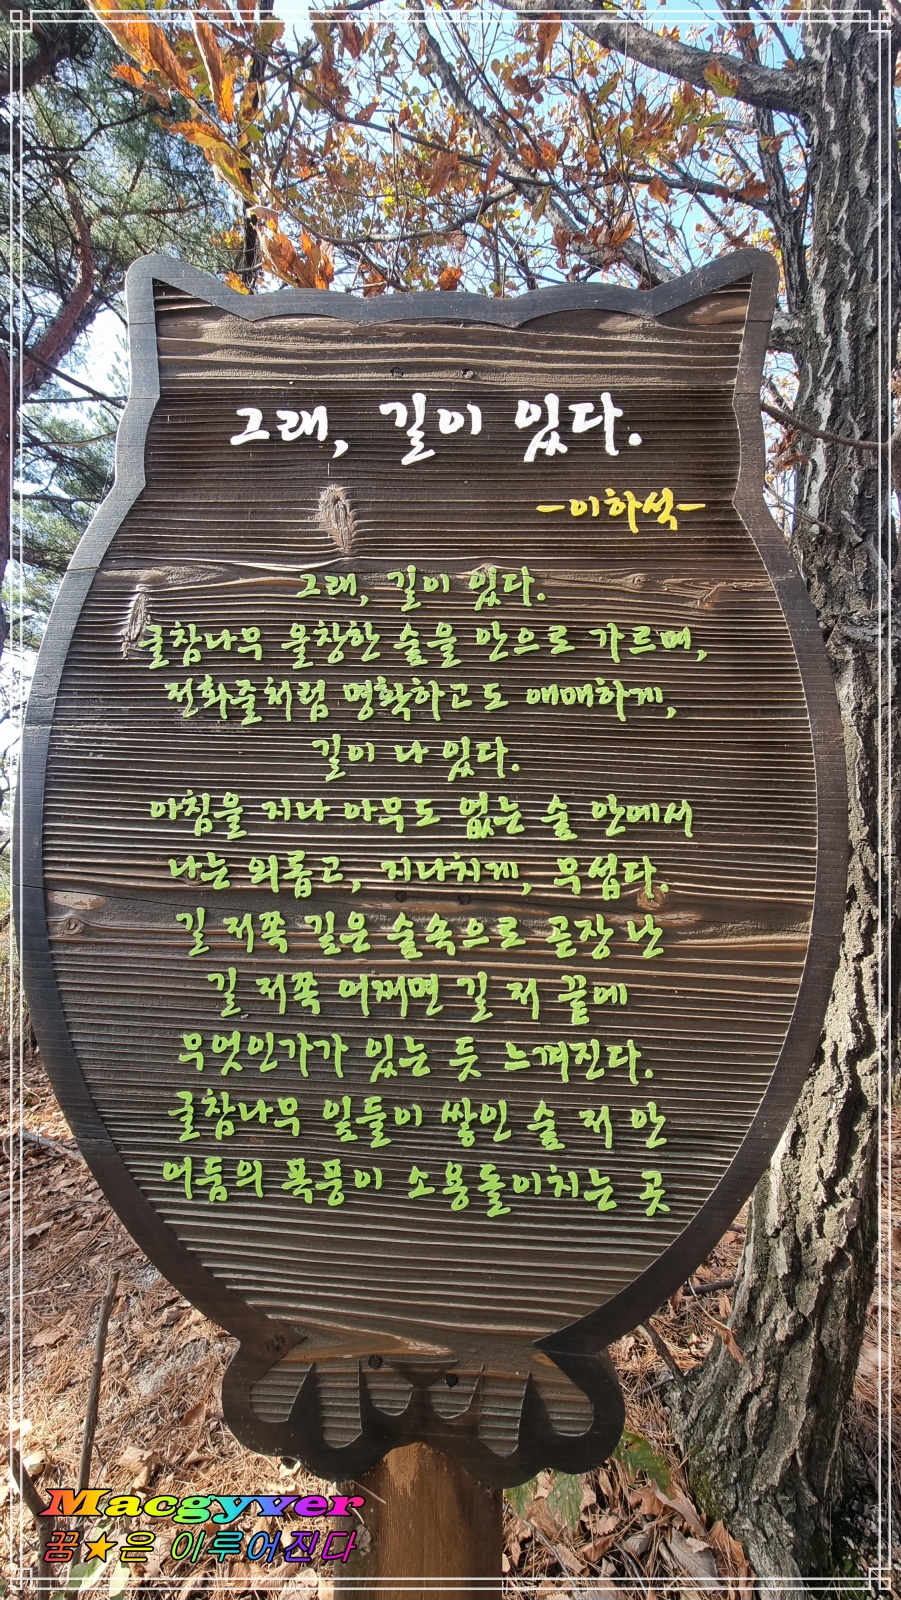 그래, 길이 있다.
-이하석-
그래, 길이 있다.
굴참나무 울창한 숲을 안으로 가르며,
전화줄처럼 명확하고도 애매하게,
길이 나 있다.
아침을 지나 아무도 없는 숲 안에서
나는 외롭고, 지나치게, 무섭다.
길 저쪽 깊은 숲속으로 곧장 난
길 저쪽 어쩌면 길 저 끝에
무엇인가가 있는 듯 느껴진다.
굴참나무 잎들이 쌓인 숲 저 안
어둠의 폭풍이 소용돌이치는 곳
Macgyver
꿈★은 이루어진다